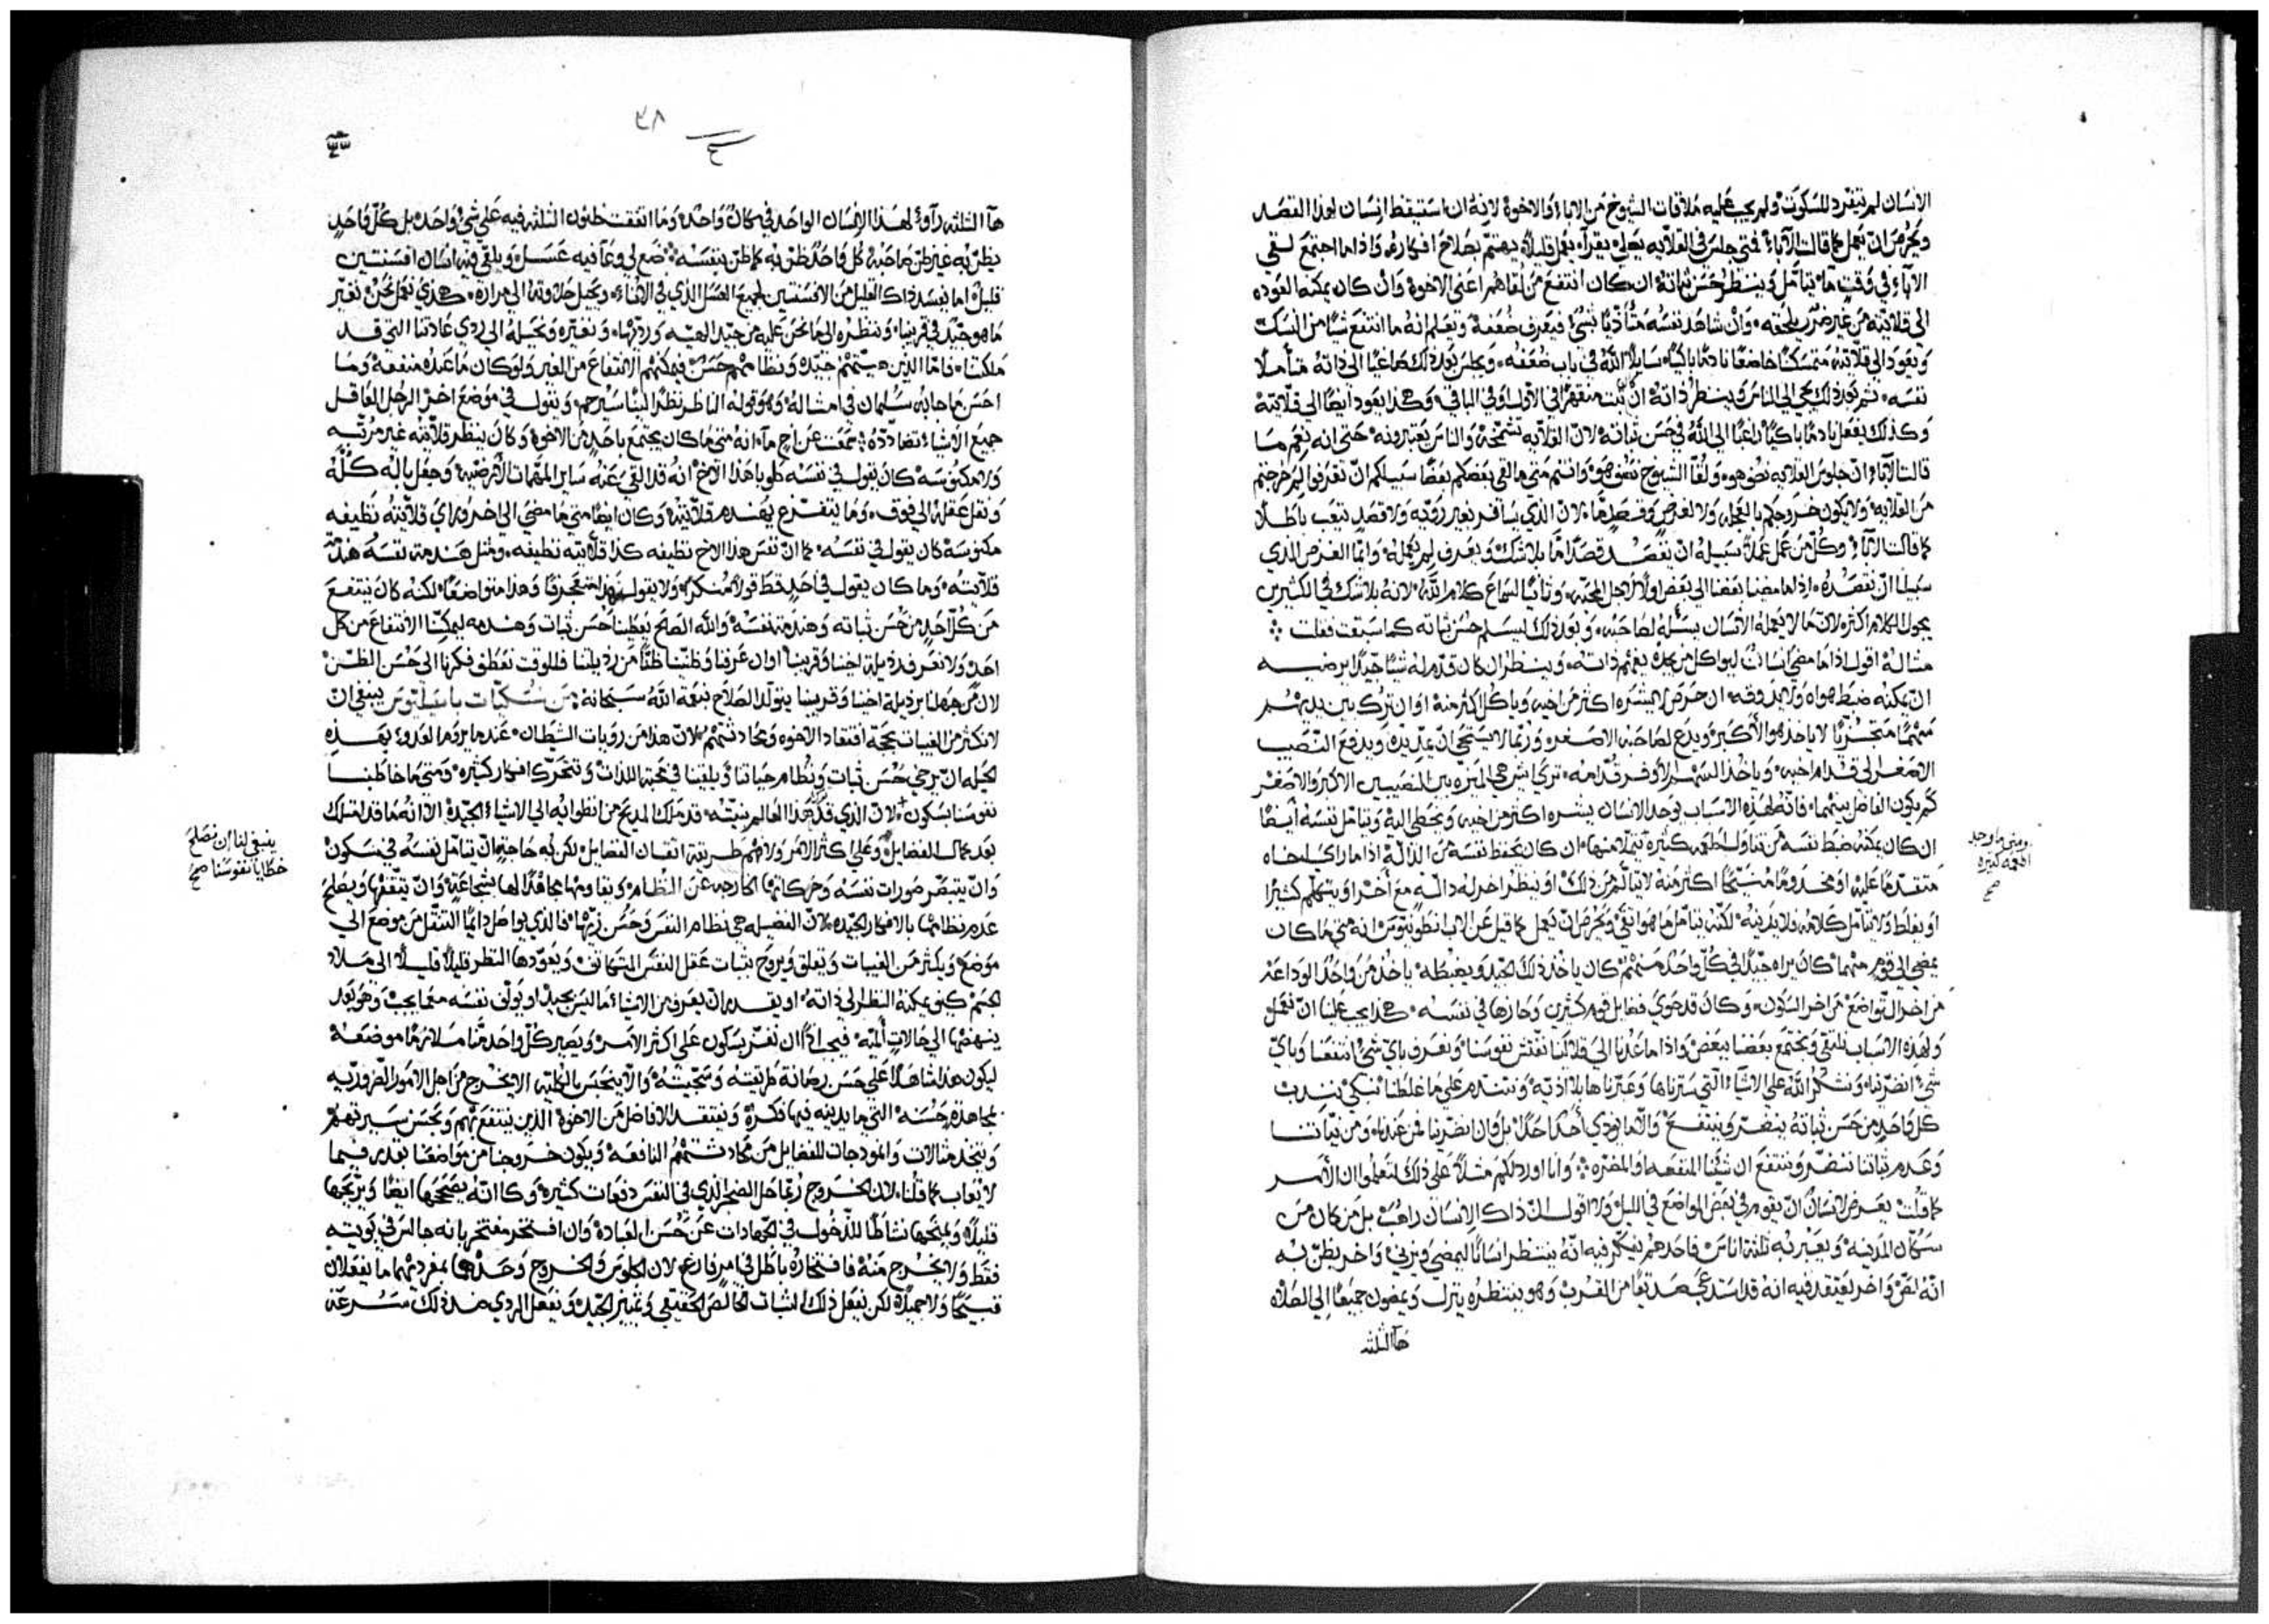 الانسان لم يتفرد للسكوت ولم يجب عليه ملاقات الشيوخ من الاباء والاخوة لانه ان استيقظ انسان لهذا القصد
ويحرص ان يعمل كما قالت الآباء فمتى جلس في القلايه يصلي يقرآء يعمل قليلاً يهتم بصلاح افكاره واذا ما اجتمع لقي
الآباء في وقتٍ ما يتأمل وينظر حسن ثباته ان كان انتفع من لقاهم اعني الاخوة وان كان يمكنه العوده
الى قلايته من غير ضرر يلحقه وان شاهد نفسه متأذيًا بشيء فيعرف ضعفه وتعلم انه ما انتفع شيًا من النسك
ويعود الى قلايته متمسكنًا خاضعًا نادمًا باكيًا سايلاً الله في باب ضعفه ويجلس بعد ذلك هاغيًا الى ذاته متأملاً
نفسه ثم بعد ذلك يجي الى الناس وينظر ذاته ان ثبت متقهقرًا في الآول او في الباقي وهكذا يعود ايضًا الى قلايته
وكذلك يفعل نادمًا باكيًا راغبًا الى الله في حسن ثباته لان القلايه تشمخه والناس يعتبرونه حتى انه نعم ما
قالت الآباء ان جلوس القلايه نصف هو ولقا الشيوخ نصف هو وانتم متى ما لقي بعضكم بعضًا سبيلكم ان تعرفوا لم خرجتم
من القلايه ولا يكون خروجكم بالعجله ولا لغرض وقصدٍ ما لان الذي يسافر بغير رؤيه ولا قصدٍ تعب باطلاً
كما قالت الآباء وكل من عمل عملاً سبيله ان يقصد قصدًا ما بلا شك ويعرف لم يعمله وانما الغرض الذي
سبيلنا ان نقصده اذا ما مضينا بعضنا الى بعض اولاً من اجل المحبه وثانيًا لسماع كلام الله لانه بلا شك في الكثيرين
يجول الكلام اكثر لان ما لا يعمله الانسان يسأله لصاحبه وبعد ذلك ليسلم حسن ثباته كما سبقت فقلت
مثاله اقول اذا ما مضى انسان ليواكل من يحبه يفهم ذاته وينظر ان كان قدم له شيًا جيدًا يرضيه
ان يمكنه ضبط هواه ولا يذوقه ان حرص ليشره اكثر من اخيه وياكل اكثر منه او ان ترك بين يديهم
متهمًا متجزيًا لا ياخذ هو الاكبر ويدع لصاحبه الاصغر وربما لا يستحي ان يمد يده ويدفع النصيب
الاصغر الى قدام اخيه وياخذ السهم الأوفر قدامه ترى اي شي هي الميزه بين النصيبين الاكبر والاصغر
كم يكون الفاضل بينهما فانه لهذه الاسباب يوجد الانسان يشره اكثر من اخيه ويخطي اليه ويتامل نفسه ايضًا
ان كان يمكنه ضبط نفسه من تناول اطعمه كثيره يتملا منها ان كان يحفظ نفسه من الدالة اذا ما راى اخاه
متقدمًا عليه او مخدومًا منسحبًا اكثر منه لا يتألم من ذلك او ينظر اخر له دالة مع آخر او يتهلهم كثيرًا
او يغلط ولا يتأمل كلامه فلا يدينه لكنه يتامل ما هو انقى ويحرص ان يعمل كما قيل عن الاب انطونيوس انه متى ما كان
يمضي الى قوم منهما كان يراه جيدًا في كل واحد منهم كان ياخذ ذلك الجيد ويغبطه ياخذ من واحد الوداعه
من اخر التواضع من اخر السكون وكان قد حوى فضايل قوم كثيرين وحازها في نفسه هكذا يجب علينا ان نعمل
ولهذه الاسباب نلتقي ونجتمع بعضنا ببعض واذا ما عدنا الى قلالينا نفتش نفوسنا ونعرف باي شيء انتفعنا وباي
شيء انضرينا ونشكر الله على الاشياء التي سترناها وعبرناها بلا اذيه ونتندم على ما غلطنا نبكي نندب
كل واحدٍ من حسن ثباته ينضر وينتفع وإلاّ ما يوذي أحدًا احدًا بل وان انضرينا فمن عندنا ومن نياتنا
وعدم ثباتنا ننضر وننتفع ان شينا المنفعه او المضره وانا اورد لكم مثلاً على ذلك لتعلموا ان الأمر
كما قلت يعرض لانسان ان يقوم في بعض المواضع في الليل ولا اقول ان ذاك الانسان راهب بل من كان من
سكان المدينه ويعبر به ثلثة اناس فاحدهم يفتكر فيه انه ينتظر انسانًا ليمضي ويزني واخر يظن به
انه لص واخر يعتقد فيه انه قد استدعى صديقًا من القرب وهو ينتظره ينزل ويمضون جميعًا الى الصلاه
هآ الثلثه
ومتى ما وجد
اطعمه كثيره
صح
٣٨
ح
هآ الثلثه رآوا لهذا الانسان الواحد في مكان واحد وما اتفقت ظنون الثلثه فيه على شيٍ واحد بل كل واحدٍ
يظن به غير ظن صاحبه كل واحد ظن به كما ظن بنفسه ضع لي وعآ فيه عسل ويلقي فيه انسان افسنتين
قليل اما يفسد ذاك القليل من الافسنتين لجميع العسل الذي في الاناء ويحيل حلاوته الى مراره هكذي نعمل نحن نغير
ما هو جيد في قريبنا وننظره الى ما نحن عليه من جيد الهيه ورديها ونغيره ونحيله الى ردي عادتنا التي قد
ملكتنا فاما الذين سجيتهم جيده ونظامهم حسن فيمكنهم الانتفاع من الغير ولو كان ما عنده منفعه وما
احسن ما جابه سليمان في امثاله وهو قوله الناظر نظرًا لينًا سيرحم ونقول في موضع اخر الرجل العاقل
جميع الاشياء تضادده سمعت عن اخٍ مآ انه متى ما كان يجتمع باحدٍ من الاخوة وكان ينظر قلايته غير مرتبه
ولا مكنوسه كان يقول في نفسه طوبا هذا الاخ انه قد القى عنه ساير المهمات الأرضيه وجعل باله كله
ونقل عقله الى فوق وما يتفرغ يهندم قلايته وكان ايضًا متى ما مضى الى اخر وراى قلايته نظيفه
مكنوسه كان يقول في نفسه كما ان نفس هذا الاخ نظيفه كذا قلايته نظيفه ومثل هندمة نفسه هندمة
قلايته وما كان يقول في احدٍ قط قولاً منكرًا ولا يقول هذا متعجرفًا وهذا متواضعًا لكنه كان ينتفع
من كل آحدٍ من حسن ثباته وهندمة نفسه والله الصالح يعطينا حسن ثبات وهندمه ليمكنا الانتفاع من كل
احد ولا نعرف رذيلة اخينا وقريبنا او ان عرفنا وظنينا ظنًا من رذيلتنا فللوقت نعطف فكرنا الى حسن الظن
لان من جهلنا برذيلة اخينا وقريبنا يتولد الصلاح بنعمة الله سبحانه من نسكيات باسيليوس ينبغي ان
لا نكثر من الغيبات بحجة افتقاد الاخوه ومحادثتهم لان هذا من رؤيات الشيطان عندما يروم العدو بهذه
الحيله ان يرخي حسن ثبات ونظام حياتنا ويلقينا في محبة اللذات وتتحرك افكار كثيره ومتى ما خاطبنا
نفوسنا بسكون لان الذي قد هذا العالم بنيته قد ملك المديح من انطوائه الى الاشياء الجيده الا انه ما قد امتلك
بعد كمال الفضايل وعلى اكثر الامر ولا فهم طريقة اتقان الفضايل لكن به حاجةٍ ان يتامل نفسه في سكون
وان يتبصر صورات نفسه وحركاتها الخارجه عن النظام ويقاومها مجاهدًا لها بشجاعةٍ وان يتثقفها ويصلح
عدم نظامها بالافكار الجيده لان الفضيله هي نظام النفس وحسن زيها فالذي يواصل دايمًا التنقل من موضع الى
موضع ويكثر من الغيبات ويعلق ويروح بثبات عقل النفس المتهاتف ويعودها النظر قليلاً قليلاً الى ملاذ
الجسم كيف يمكنه النظر الى ذاته او يقدم ان يعرف من الاشياء ما ليس بجيد او يوقف نفسه متما يجب وهو بعد
ينهضها الى حالات أليمه فيجب اذًا ان نفتر بسكون على اكثر الامر ويصير كل واحد منا ملازمًا موضعه
ليكون هذا شاهدًا على حسن رصانة طريقته وسجيته وألا ينحبس بالكليه الا يخرج من اجل الامور الضروريه
بمجاهدة حسنه التي ما يدينه فيها فكره ونفتقد الافاضل من الاخوة الذين ينتفع بهم وبحسن سيرتهم
ويتخذ مثالات وانموذجات للفضايل من محادثتهم النافعه ويكون خروجنا من مواضعنا بقدر فيما
لا نعاب كما قلنا لان الخروج ربما حل الضجر الذي في النفس دفعات كثيره وكانه يصححها ايضًا ويريحها
قليلاً ويمنحها نشاطًا للدخول في الجهادات عن حسن العباده وان افتخر مفتخر بانه جالس في بويته
فقط ولا يخرج منه فافتخاره باطل في امرٍ فارغ لان الجلوس والخروج وحدهما بمفردهما ما يفعلان
قبيحًا ولا جميلاً لكن يفعل ذلك الثبات الخالص الحقيقي وتمييز الجيد ونفعل الردي ضد ذلك سرعة
ينبغي لنا ان نصلح
خطايا نفوسنا صح